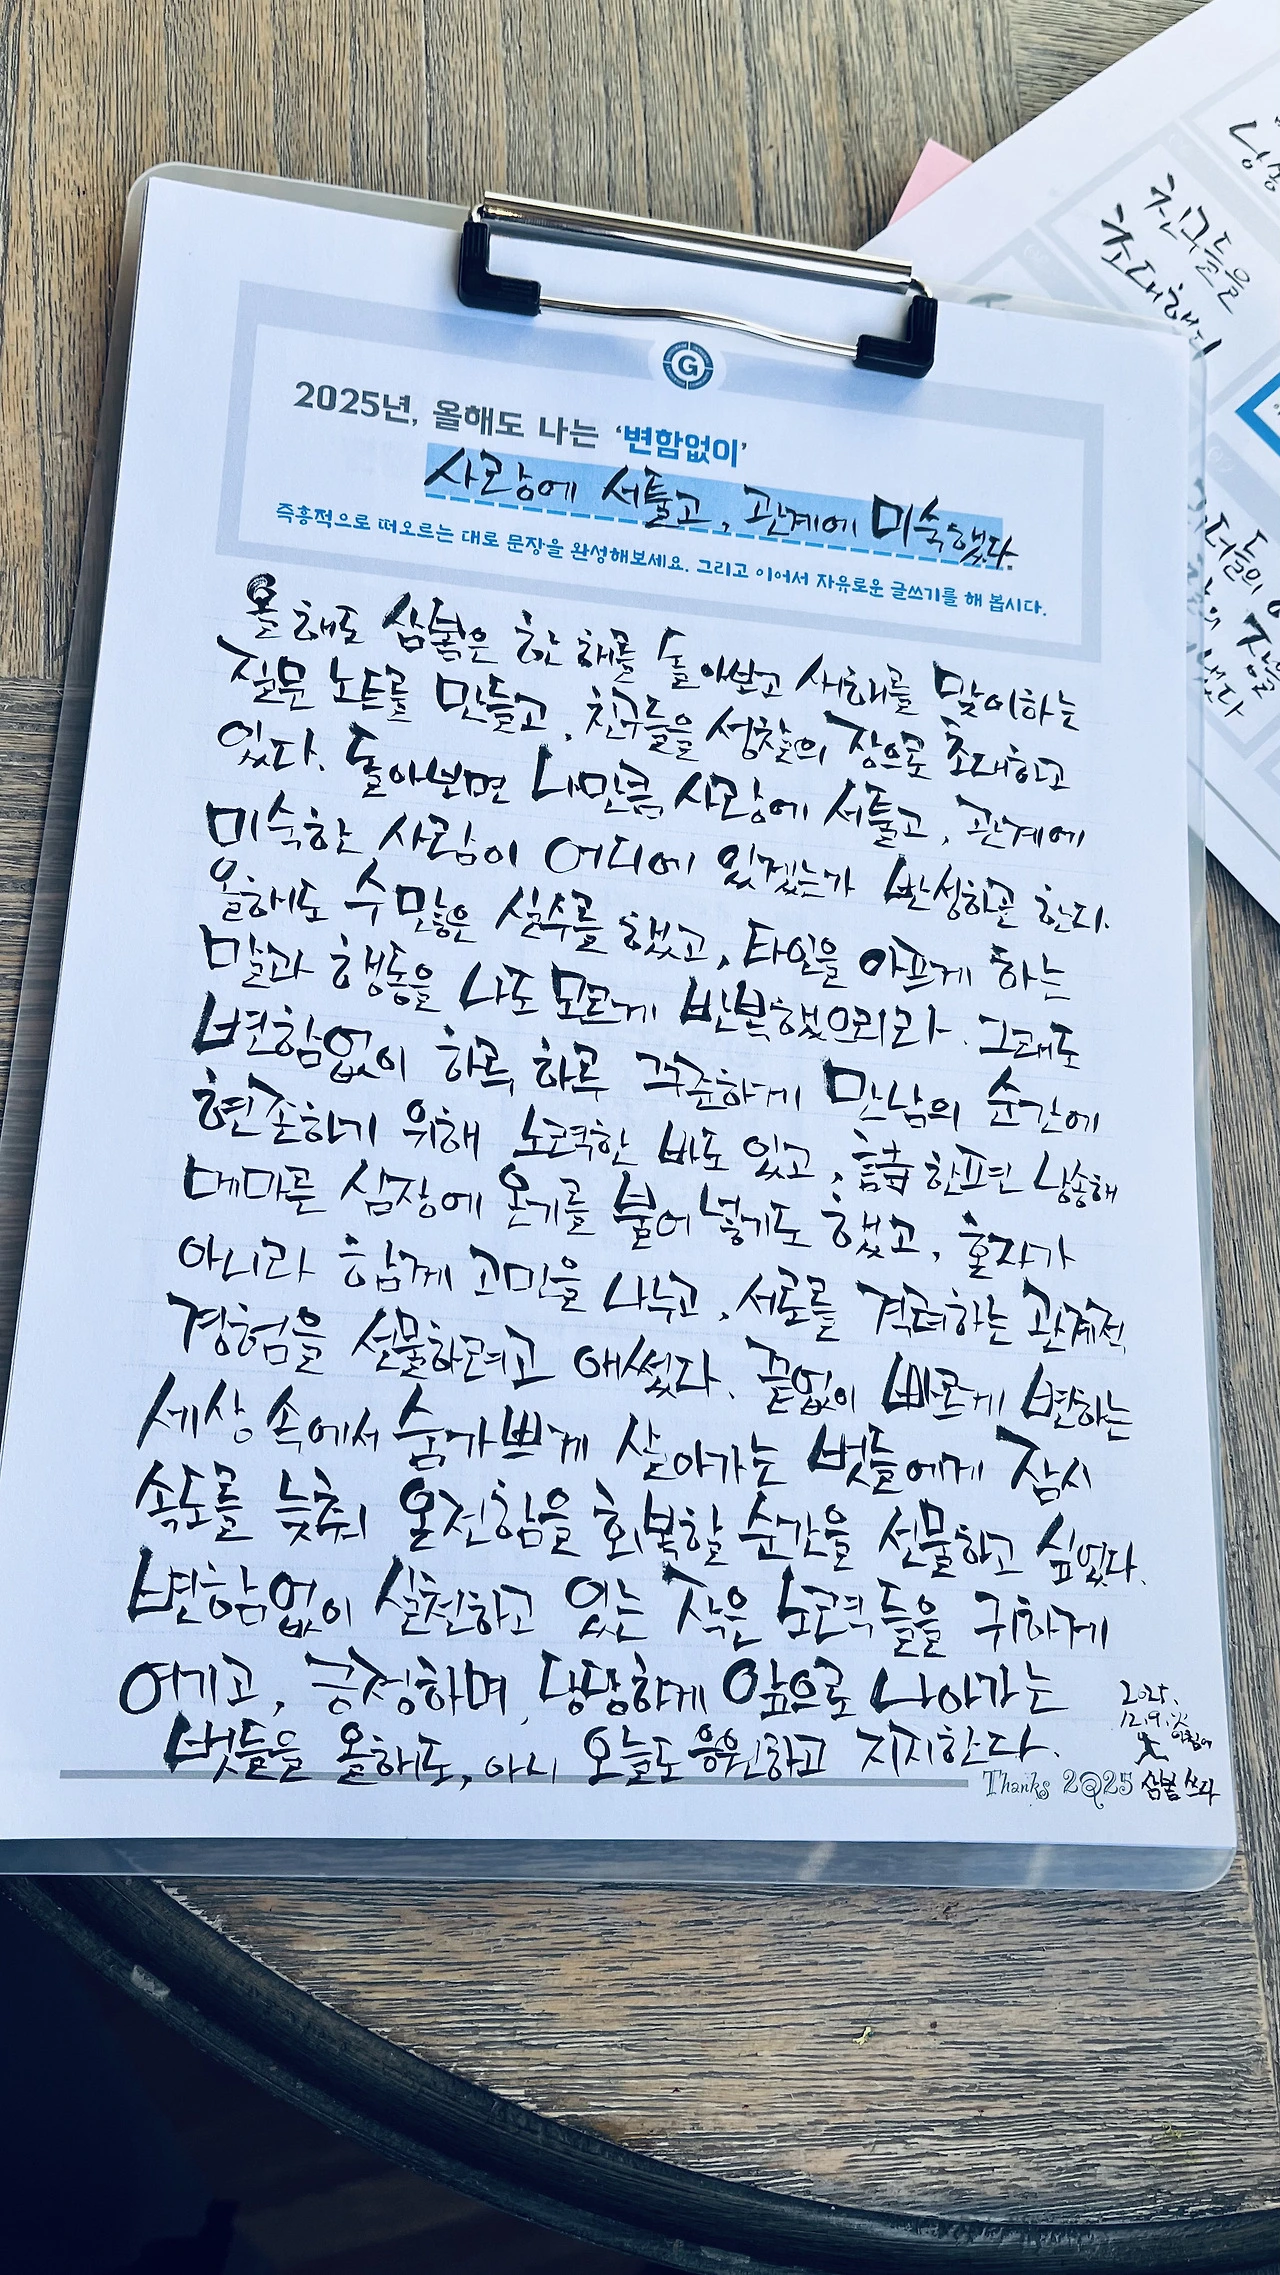 G
2025년, 올해도 나는 '변함없이'
사랑에 서툴고, 관계에 미숙했다.
즉흥적으로 떠오르는 대로 문장을 완성해보세요. 그리고 이어서 자유로운 글쓰기를 해 봅시다.
올해도 삼봄은 한 해를 돌아보고 새해를 맞이하는
질문 노트를 만들고, 친구들을 성찰의 장으로 초대하고
있다. 돌아보면 나만큼 사랑에 서툴고, 관계에
미숙한 사람이 어디에 있겠는가 반성하곤 한다.
올해도 수많은 실수를 했고, 타인을 아프게 하는
말과 행동을 나도 모르게 반복했으리라. 그래도
변함없이 하루, 하루 꾸준하게 만남의 순간에
현존하기 위해 노력한 바도 있고, 詩 한편 낭송해
메마른 심장에 온기를 불어 넣기도 했고, 혼자가
아니라 함께 고민을 나누고, 서로를 격려하는 관계적
경험을 선물하려고 애썼다. 끝없이 빠르게 변하는
세상 속에서 숨가쁘게 살아가는 벗들에게 잠시
속도를 늦춰 온전함을 회복할 순간을 선물하고 싶었다.
변함없이 실천하고 있는 작은 노력들을 귀하게
여기고, 긍정하며, 당당하게 앞으로 나아가는
벗들을 올해도, 아니 오늘도 응원하고 지지한다.
2025.
12.9.火
아침에
Thanks 2025 삼봄 쓰다
친구들을
초대했다